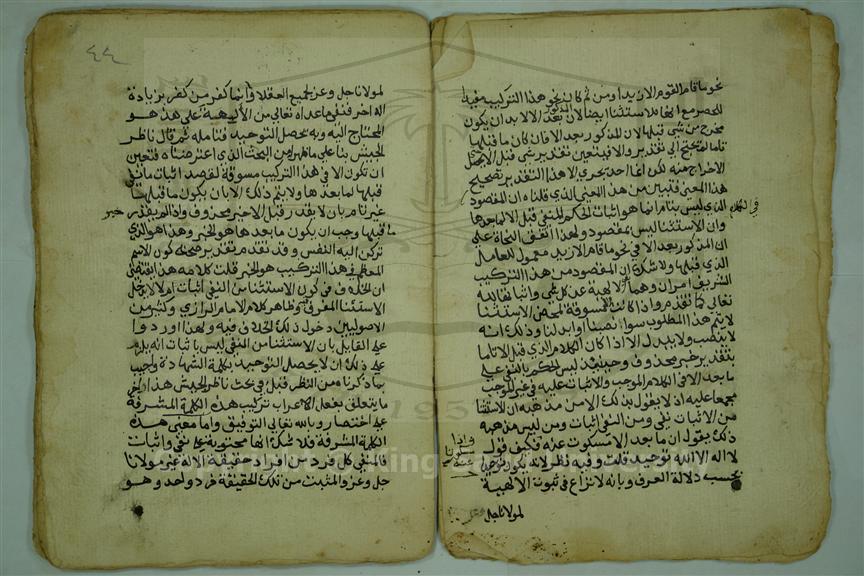 نحو ما قام القوم الا زيدا ومن ثم كان نحو هذا التركيب مفيدا
للحصر مع انها للاستثنا ايضا لان المذكور بعد الا لابد ان يكون
مخرج من شي قبلها لان المذكور بعد الا فان كان ما قبلها
تاما لم يحتج الى تقدير والا فيتعين تقدير شي قبل الا ليحصل
الاخراج منه لكن انما احد يجري الا هذا التقدير تصحيح
هذا المعنى فتبين من هذا المعنى الذي قلناه ان المقصود
في الكلام الذي ليس بتام انما هو اثبات الحكم المنفي قبل الا لما بعدها
وان الاستثنا ليس بمقصود ولهذا اتفق النحاة على
ان المذكور بعد الا في نحو ما قام الا زيد معمول للعامل
الذي قبلها ولا شك ان المقصود من هذا التركيب
الشريف امران وهما الالهية عن كل شي واثباتها لله
تعالى كما تقدم واذا كانت مسوقة لمحض الاستثنا
لا يتم هذا المطلوب سوا نصبنا او ابدلنا وذلك انه
لا ينصب ولا يبدل الا اذا كان الكلام الذي قبل الا تاما
بتقدير خبر محذوف وحينئذ ليس الحكم بالنفي على
ما بعد الا في الكلام الموجب والاثبات عليه في غير الموجب
مجمعا عليه اذ لا يقول بذلك الا من مذهبه ان الاستثنا
من الاثبات نفي ومن النفي اثبات ومن ليس مذهبه
ذلك يقول ان ما بعد الا مسكوت عنه فكيف قول
لا اله الا الله توحيد قلت وفيه نظر لانه يكون توحيد
بحسب دلالة العرف وبانه لا نزاع في ثبوت الالهية
لمولانا جل
٤٤
لمولانا جل وعز لجميع العقلا وانما كفر من كفر بزيادة
اله اخر فنفي ما عداه تعالى من الالهية على هذا هو
المحتاج اليه وبه يحصل التوحيد فتامله ثم قال ناظر
الجيش بنا على ما ظهر من البحث الذي اعترضناه فتعين
ان تكون الا في هذا التركيب مسوقة لقصد اثبات ما نفي
قبلها لما بعدها ولا يتم ذلك الا بان يكون ما قبلها
غير تام بان لا يقدر قبل الا خبر محذوف واذا لم يقدر خبر
ما قبلها وجب ان يكون ما بعدها هو الخبر وهذا هو الذي
تركن اليه النفس وقد تقدم تقدير صحة كون الاسم
المعظم في هذا التركيب هو الخبر قلت كلامه هذا يقتضي
ان الخلاف في كون الاستثنا من النفي اثبات ام لا لا يدخل
الاستثنا المفرغ وظاهر كلام الامام الرازي وكثير من
الاصوليين دخول ذلك الخلاف فيه ولهذا اوردوا
على القايل بان الاستثنا من النفي ليس باثبات انه يلزم
على ذلك ان لا يحصل التوحيد بكلمة الشهادة واجيب
بما ذكرناه من النظر قبل في بحث ناظر الجيش هذا اخر
ما يتعلق بفعل الاعراب تركيب هذه الكلمة المشرفة
على اختصار وبالله تعالى التوفيق واما معنى هذه
الكلمة المشرفة فلا شك انها محتوية على نفي واثبات
فالمنفي كل فرد من افراد حقيقة الاله غير مولانا
جل وعز والمثبت من تلك الحقيقة فرد واحد وهو